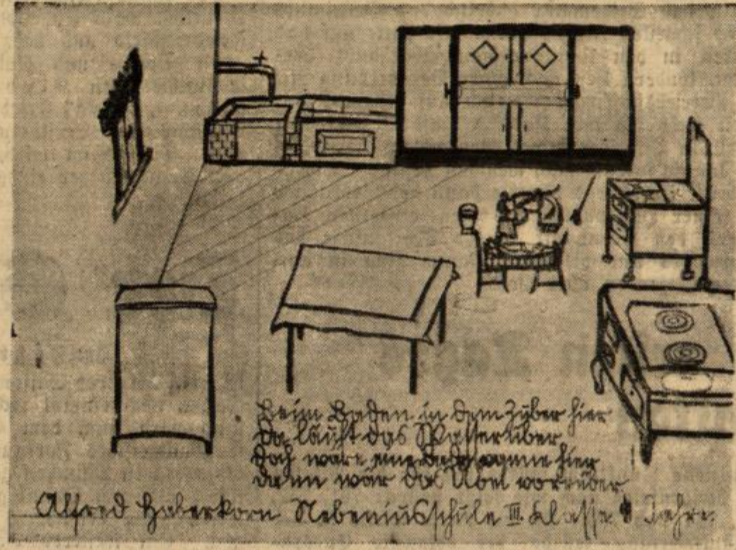 Beim Baden in dem Züber hier
Da läuft das Wasser über
Doch wäre eine Badewanne hier
dann wär das Übel vorrüber
Alfred Haberkorn Nebeniusschule III. Klasse 9 Jahre.